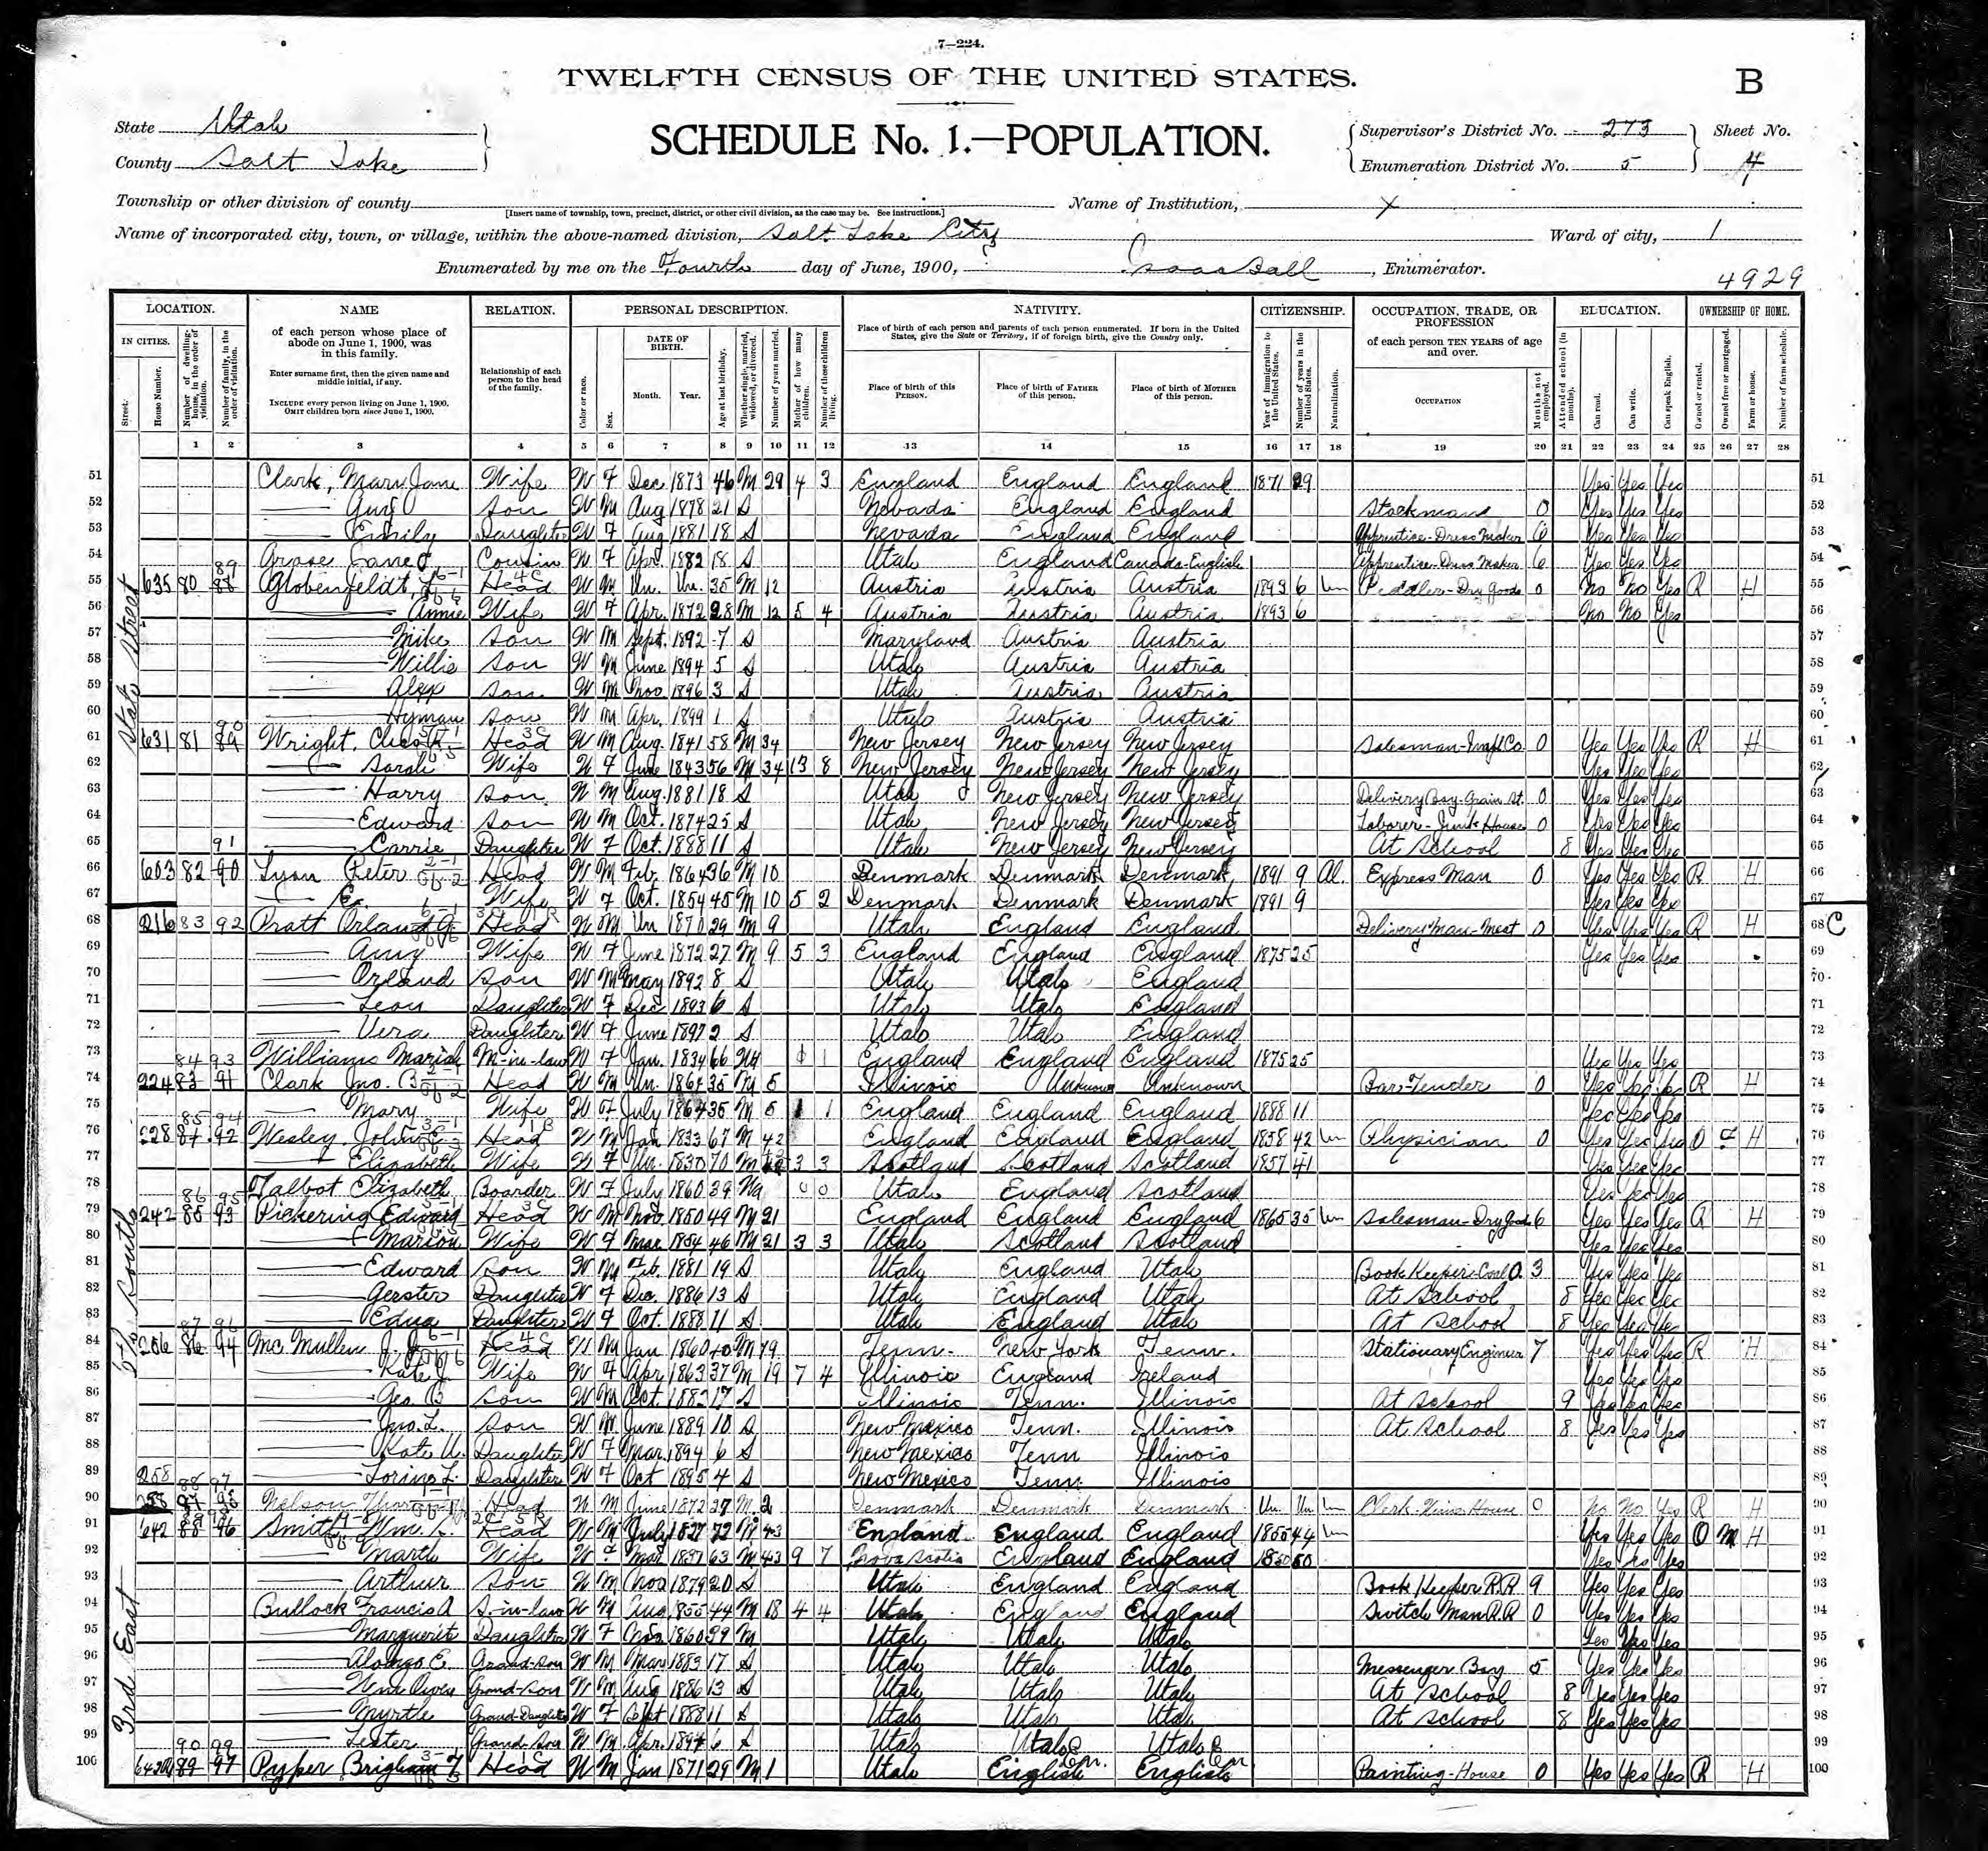 7—224.
TWELFTH CENSUS OF THE UNITED STATES.
B
State Utah
SCHEDULE No. 1.—POPULATION.
Supervisor's District No. 273 Sheet No.
County Salt Lake
Enumeration District No. 5 4
Township or other division of county Name of Institution, X
[Insert name of township, town, precinct, district, or other civil division, as the case may be. See instructions.]
Name of incorporated city, town, or village, within the above-named division, Salt Lake City Ward of city, 1
Enumerated by me on the Fourth day of June, 1900, Enumerator.
4929
LOCATION. NAME RELATION. PERSONAL DESCRIPTION. NATIVITY. CITIZENSHIP. OCCUPATION, TRADE, OR PROFESSION EDUCATION. OWNERSHIP OF HOME.
IN CITIES.
Street.
House Number.
Number of dwelling-house, in the order of visitation.
Number of family, in the order of visitation.
of each person whose place of abode on June 1, 1900, was in this family.
Enter surname first, then the given name and middle initial, if any.
INCLUDE every person living on June 1, 1900.
OMIT children born since June 1, 1900.
Relationship of each person to the head of the family.
Color or race.
Sex.
DATE OF BIRTH.
Month. Year.
Age at last birthday.
Whether single, married, widowed, or divorced.
Number of years married.
Mother of how many children.
Number of these children living.
Place of birth of each person and parents of each person enumerated. If born in the United States, give the State or Territory; if of foreign birth, give the Country only.
Place of birth of this PERSON.
Place of birth of FATHER of this person.
Place of birth of MOTHER of this person.
Year of immigration to the United States.
Number of years in the United States.
Naturalization.
of each person TEN YEARS of age and over.
OCCUPATION
Months not employed.
Attended school (in months).
Can read.
Can write.
Can speak English.
Owned or rented.
Owned free or mortgaged.
Farm or house.
Number of farm schedule.
1 2 3 4 5 6 7 8 9 10 11 12 13 14 15 16 17 18 19 20 21 22 23 24 25 26 27 28
State Street
5th South
3rd East
51 Clark, Mary Jane Wife W F Dec 1873 46 M 29 4 3 England England England 1871 29 Yes Yes Yes 51
52 Guy Son W M Aug 1878 21 S Nevada England England Stockman 0 Yes Yes Yes 52
53 Emily Daughter W F Aug 1881 18 S Nevada England England Apprentice-Dress Maker 6 Yes Yes Yes 53
54 Cousin W F Apr. 1882 18 S Utah England Canada-English Apprentice-Dress Maker 6 Yes Yes Yes 54
55 635 80 88 89 Globenfeldt, Head W M Un. Un. 35 M 12 Austria Austria Austria 1893 6 Un Peddler-Dry Goods 0 No No Yes R H 55
56 Annie Wife W F Apr. 1872 28 M 12 5 4 Austria Austria Austria 1893 6 No No Yes 56
57 Mike Son W M Sept. 1892 7 S Maryland Austria Austria 57
58 Willie Son W M June 1894 5 S Utah Austria Austria 58
59 Alex Son W M Nov 1896 3 S Utah Austria Austria 59
60 Hyman Son W M Apr. 1899 1 S Utah Austria Austria 60
61 631 81 89 90 Wright, Chas Head W M Aug. 1841 58 M 34 New Jersey New Jersey New Jersey 0 Yes Yes Yes R H 61
62 Sarah Wife W F June 1843 56 M 34 13 8 New Jersey New Jersey New Jersey Yes Yes Yes 62
63 Harry Son W M Aug. 1881 18 S Utah New Jersey New Jersey Delivery Boy-Grain St. 0 Yes Yes Yes 63
64 Edward Son W M Oct. 1874 25 S Utah New Jersey New Jersey Laborer-Junk House 0 Yes Yes Yes 64
65 Carrie Daughter W F Oct. 1888 11 S Utah New Jersey New Jersey At School 8 Yes Yes Yes 65
66 603 82 90 91 Lyon Peter Head W M Feb. 1864 36 M 10 Denmark Denmark Denmark 1891 9 Al. Express Man 0 Yes Yes Yes R H 66
67 Wife W F Oct. 1854 45 M 10 5 2 Denmark Denmark Denmark 1891 9 Yes Yes Yes 67
68 216 83 92 Pratt Orland G. Head W M Un 1870 29 M 9 Utah England England Delivery Man-Meat 0 Yes Yes Yes R H 68 C
69 Amy Wife W F June 1872 27 M 9 5 3 England England England 1875 25 Yes Yes Yes 69
70 Orland Son W M May 1892 8 S Utah Utah England 70
71 Leon Daughter W F Dec 1893 6 S Utah Utah England 71
72 Vera Daughter W F June 1897 2 S Utah Utah England 72
73 Williams Mariah M-in-law W F Jan. 1834 66 Wd 1 England England England 1875 25 Yes Yes Yes 73
74 224 83 91 84 93 Clark Jno. B Head W M Un. 1864 35 M 5 Illinois Unknown Unknown Bar-Tender 0 Yes Yes Yes R H 74
75 Mary Wife W F July 1864 35 M 5 1 1 England England England 1888 11 Yes Yes Yes 75
76 228 84 92 85 94 Wesley John Head W M Jan 1833 67 M 42 England England England 1858 42 Un Physician 0 Yes Yes Yes O F H 76
77 Elizabeth Wife W F Un. 1830 70 M 42 3 3 Scotland Scotland Scotland 1857 41 Yes Yes Yes 77
78 Talbot Elizabeth Boarder W F July 1860 39 Wd 0 0 Utah England Scotland Yes Yes Yes 78
79 242 85 93 86 95 Pickering Edward Head W M Nov 1850 49 M 21 England England England 1865 35 Un Salesman-Dry Goods 6 Yes Yes Yes R H 79
80 Marion Wife W F Mar 1854 46 M 21 3 3 Utah Scotland Scotland Yes Yes Yes 80
81 Edward Son W M Feb. 1881 19 S Utah England Utah Book Keeper-Coal O. 3 Yes Yes Yes 81
82 Daughter W F Dec. 1886 13 S Utah England Utah At School 8 Yes Yes Yes 82
83 Edna Daughter W F Oct. 1888 11 S Utah England Utah At School 8 Yes Yes Yes 83
84 256 86 94 87 96 Mc Mullen J. J. Head W M Jan 1860 40 M 19 Tenn. New York Tenn. Stationary Engineer 7 Yes Yes Yes R H 84
85 Kate J. Wife W F Apr 1863 37 M 19 7 4 Illinois England Ireland Yes Yes Yes 85
86 Geo. B Son W M Oct. 1882 17 S Illinois Tenn. Illinois At School 9 Yes Yes Yes 86
87 Jno. L. Son W M June 1889 10 S New Mexico Tenn. Illinois At School 8 Yes Yes Yes 87
88 Kate A. Daughter W F Mar. 1894 6 S New Mexico Tenn Illinois 88
89 258 Daughter W F Oct 1895 4 S New Mexico Tenn. Illinois 89
90 88 97 Nelson Head W M June 1872 27 M 2 Denmark Denmark Denmark Un. Un. Un Clerk-Wine House 0 No No Yes R H 90
91 642 88 96 Smith, Wm. Head W M July 1827 72 M 43 England England England 1855 44 Un Yes Yes Yes O M H 91
92 Marth Wife W F Mar 1837 63 M 43 9 7 Nova Scotia England England 1850 50 Yes Yes Yes 92
93 Arthur Son W M Nov 1879 20 S Utah England England Book Keeper R.R. 9 Yes Yes Yes 93
94 Bullock Francis A S-in-law W M Aug 1855 44 M 18 4 4 Utah England England Switch Man R.R 0 Yes Yes Yes 94
95 Marguerite Daughter W F Nov 1860 39 M Utah Utah Utah Yes Yes Yes 95
96 Alonzo E. Grand-son W M Mar 1883 17 S Utah Utah Utah Messenger Boy 5 Yes Yes Yes 96
97 Wm Grand-son W M Aug 1886 13 S Utah Utah Utah At School 8 Yes Yes Yes 97
98 Myrtle Grand-Daughter W F Sept 1888 11 S Utah Utah Utah At School 8 Yes Yes Yes 98
99 Lester Grand-Son W M Apr. 1894 6 S Utah Utah Utah 99
100 89 97 90 99 Pyper Brigham F Head W M Jan 1871 29 M 1 Utah English English Painting-House 0 Yes Yes Yes R H 100